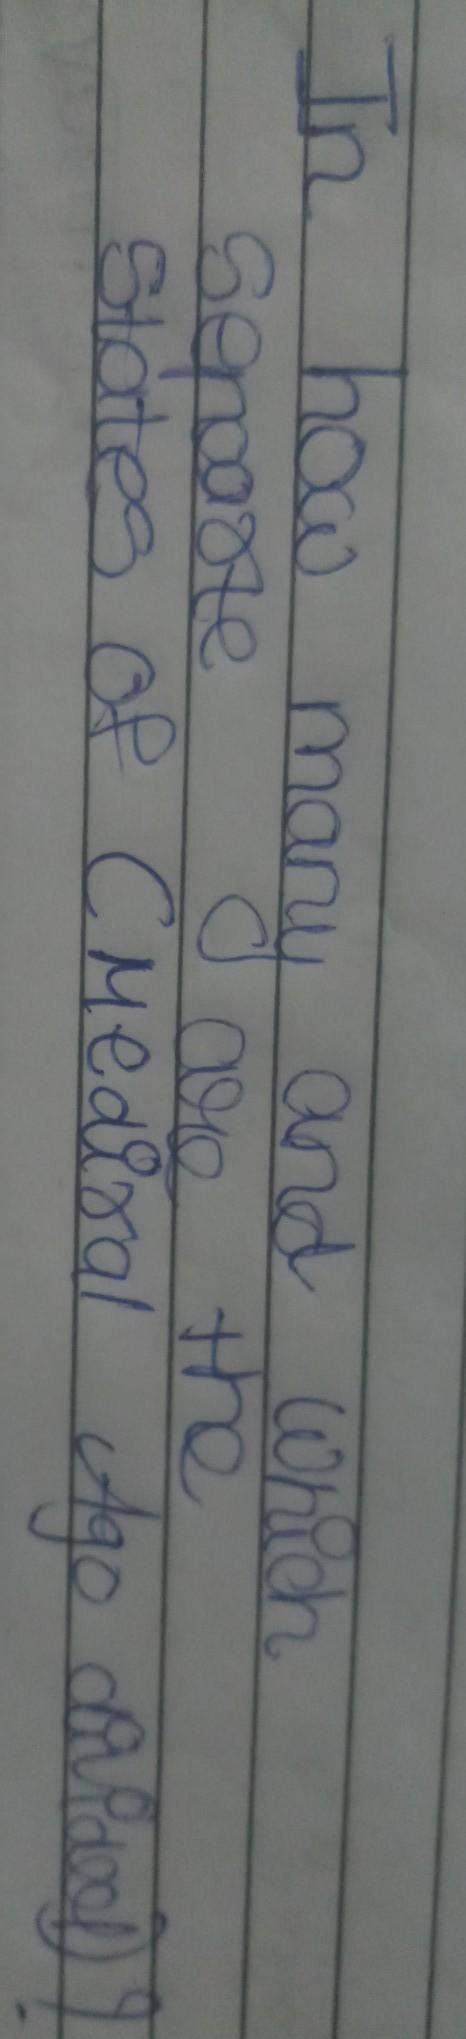 In how many and which
separate are the
states of (Medival Ago divided)?